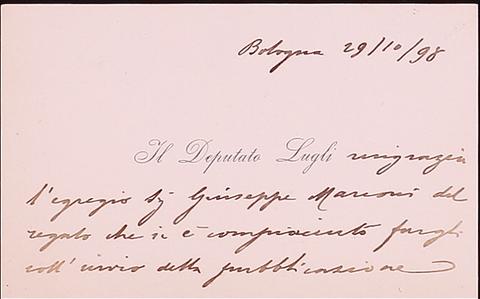 Bologna 29/10/98
Il Deputato Lugli ringrazia
l'egregio Sg Giuseppe Marconi del
regalo che si è compiaciuto fargli
coll' invio della pubblicazione